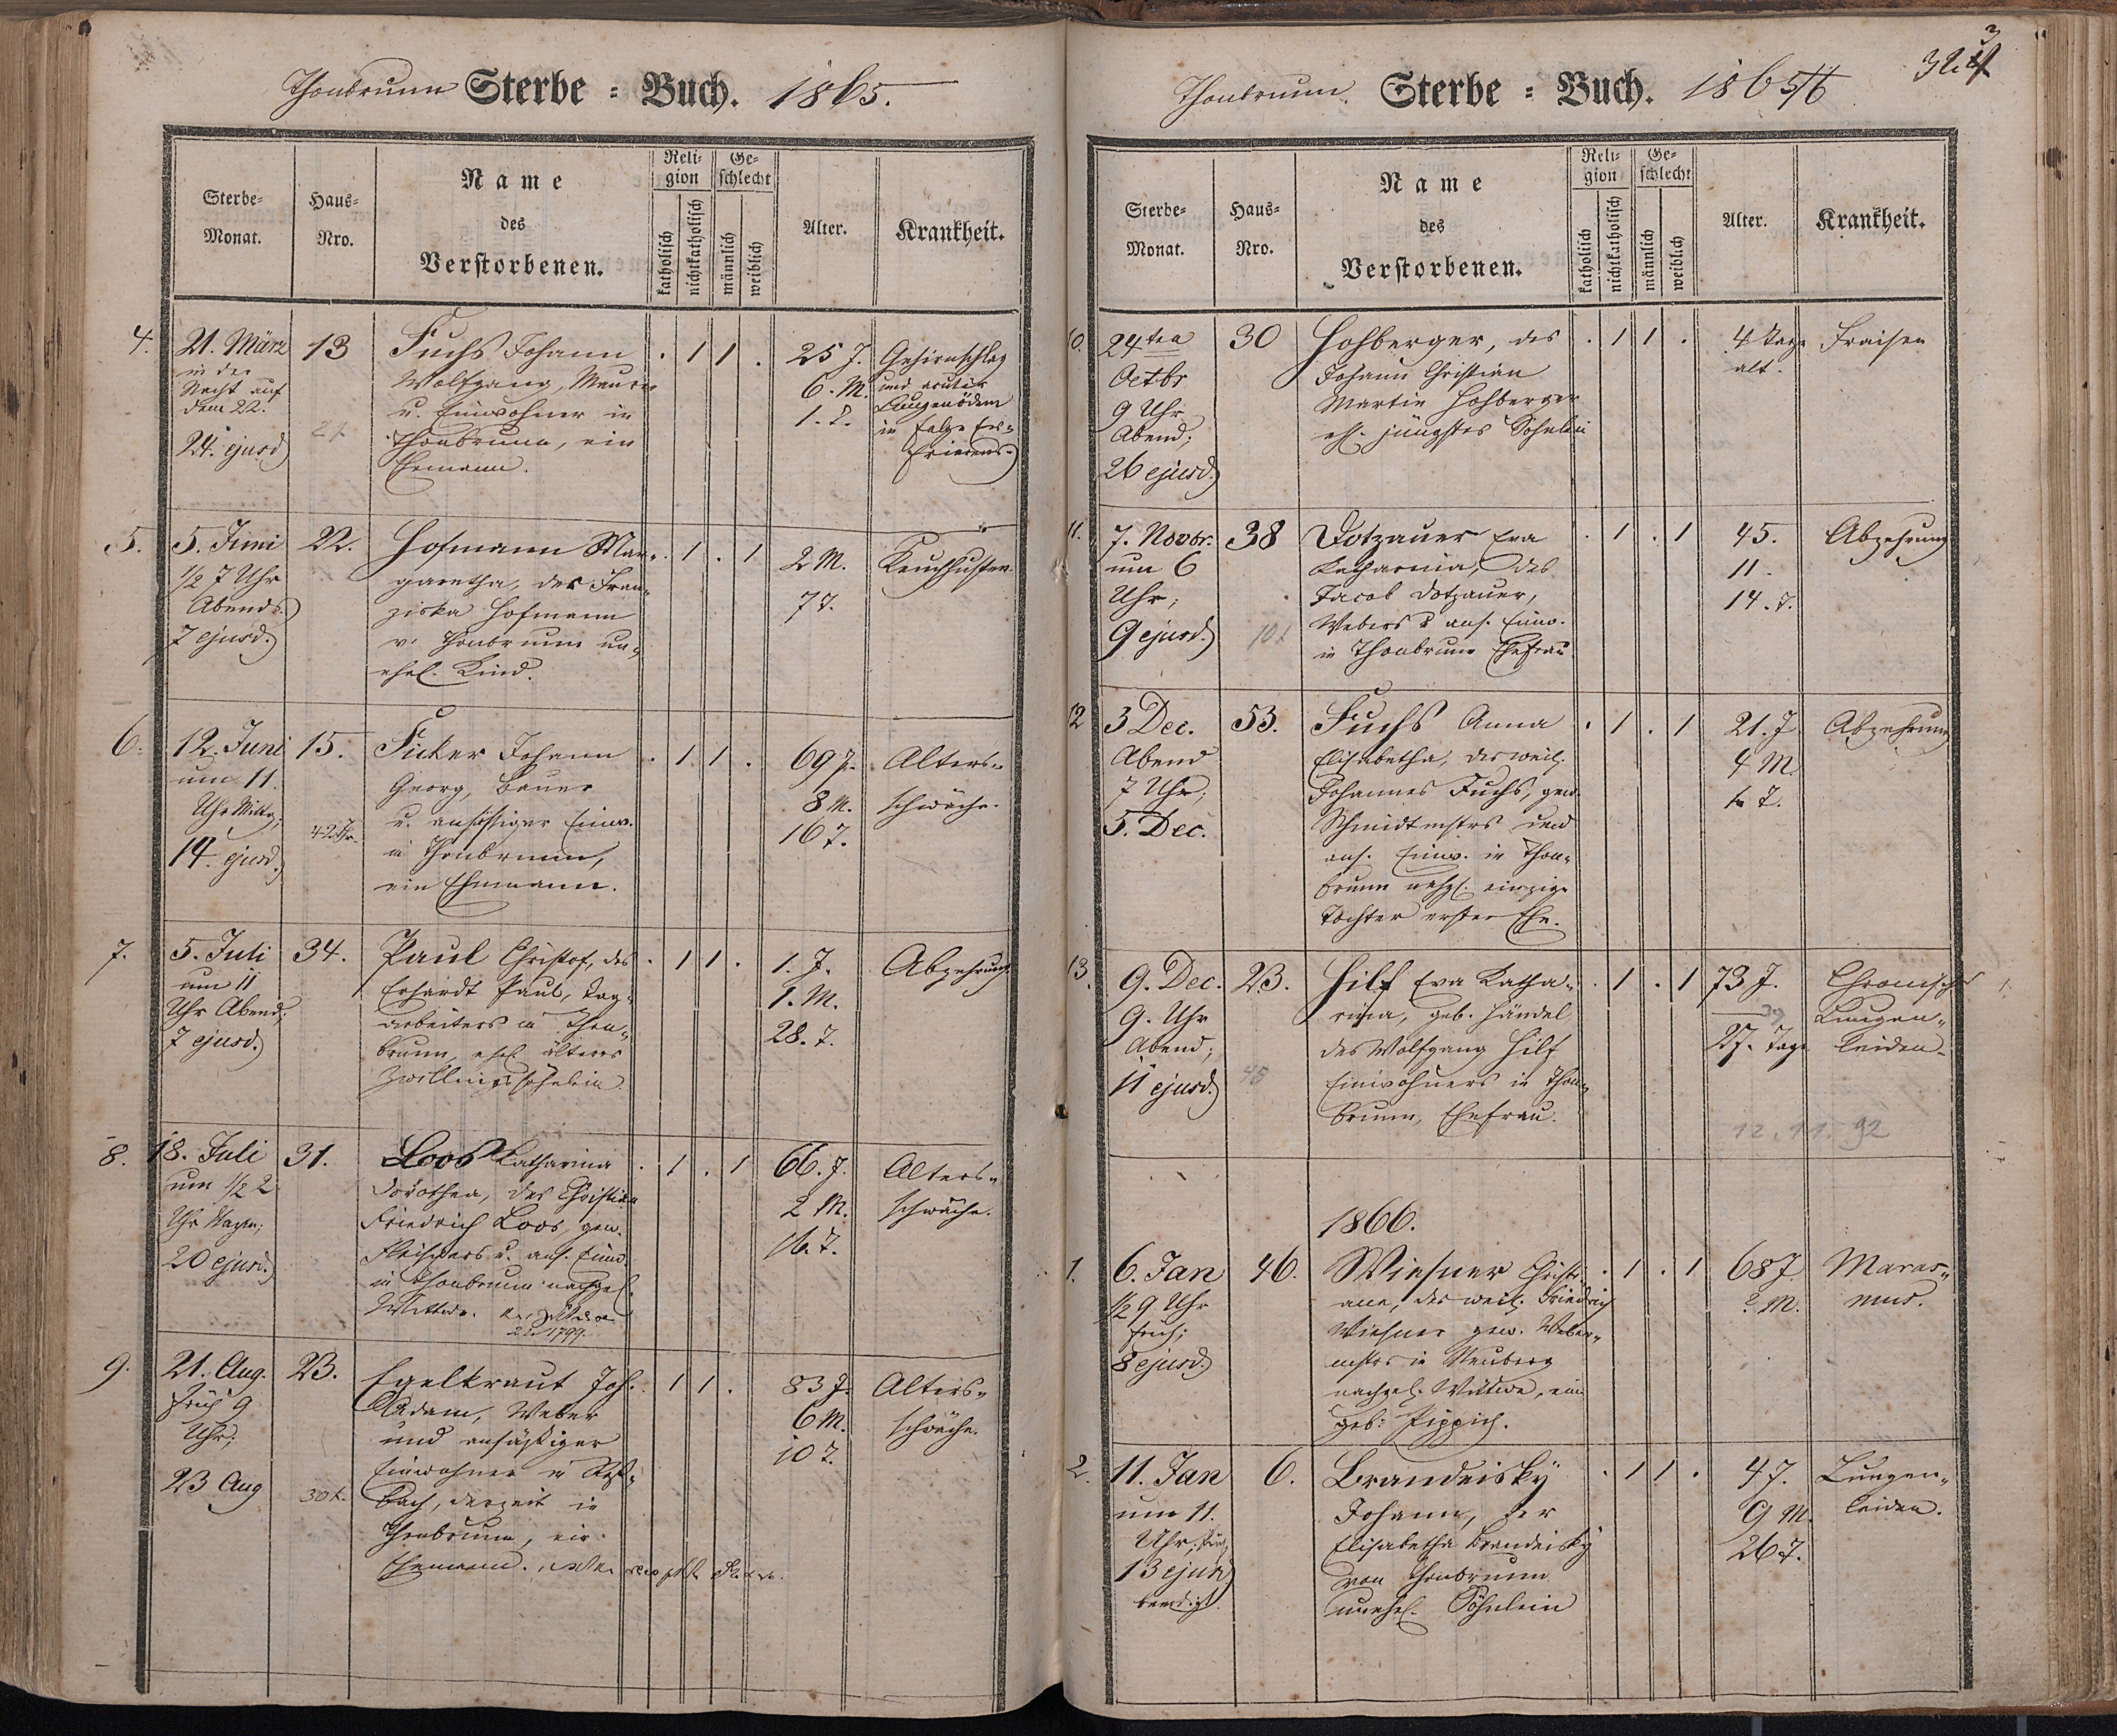 Thonbrunn Sterbe = Buch. 1865.
Sterbe-
Monat.
Haus-
Nro.
Name
des
Verstorbenen.
Reli-
gion
katholisch
nichtkatholisch
Ge-
schlecht
männlich
weiblich
Alter.
Krankheit.
4.
21. März
in der
Nacht auf
den 22.
24. ejusd.
13
Fuchs Johann
Wolfgang, Maurer
u. Einwohner in
Thonbrunn, ein
Ehemann.
. 1 1 .
25 J.
6. M.
1. T.
Gehirnschlag
und acuter
Lungenödem
in Folge Er-
frierens.
5.
5. Juni
1/2 7 Uhr
Abends.
7 ejusd.
22.
Hofmann Mar-
garetha, der Fran-
ziska Hofmann
v. Thonbrunn un-
ehel. Kind.
. 1 . 1
2 M.
7 T.
Keuchhusten.
6.
12. Juni
um 11.
Uhr Mittg;
14. ejusd.
15.
42 Jhr.
Ficker Johann
Georg, Bauer
u. ansässiger Einw.
in Thonbrunn,
ein Ehemann.
. 1 1 .
69 J.
8 M.
16 T.
Alters-
schwäche.
7.
5. Juli
um 11
Uhr Abend;
7 ejusd.
34.
Paul Christof, des
Erhardt Paul, Tag-
arbeiters in Thon-
brunn, ehel. älteres
Zwillingssöhnlein.
. 1 1 .
1. J.
1. M.
28. T.
Abzehrung.
8.
18. Juli
um 1/2 2
Uhr
20 ejusd.
31.
Loos Katharina
Dorothea, des Christian
Friedrich Loos, gew.
Fleischers u. ans. Einw.
in Thonbrunn nachgel.
Wittwe.
1799.
. 1 . 1
66. J.
2 M.
16. T.
Alters-
schwäche.
9.
21. Aug.
früh 9
Uhr;
23 Aug
23.
30
Egelkraut Joh.
Adam, Weber
und ansäßiger
Einwohner in Roß-
bach, derzeit in
Thonbrunn, ein
Ehemann.
. 1 1 .
83 J.
6 M.
10 T.
Alters-
schwäche.
Thonbrunn. Sterbe = Buch. 1865/6
Sterbe-
Monat.
Haus-
Nro.
Name
des
Verstorbenen.
Reli-
gion
katholisch
nichtkatholisch
Ge-
schlecht
männlich
weiblich
Alter.
Krankheit.
10.
24ten
Octbr
9 Uhr
Abend;
26 ejusd.
30
Hohberger, des
Johann Christian
Martin Hohberger
ehl. jüngstes Söhnlein
. 1 1 .
4 Tage
alt.
Fraisen
11.
7. Novbr.
um 6
Uhr;
9 ejusd.
38
Dotzauer Eva
Katharina, des
Jacob Dotzauer,
Webers u ans. Einw.
in Thonbrunn Ehefrau
. 1 . 1
45.
11.
14. T.
Abzehrung
12
3 Dec.
Abend
7 Uhr;
5. Dec.
53.
Fuchs Anna
Elisabetha, des weil.
Johannes Fuchs, gew.
Schmidtmstrs und
ans. Einw. in Thon-
brunn nchgl. einzige
Tochter erster Ehe.
. 1 . 1
21. J
4 M.
Abzehrung
13.
9. Dec.
9. Uhr
Abend;
11 ejusd.
23.
45
Hilf Eva Katha-
rina, geb. Händel
des Wolfgang Hilf
Einwohners in Thon-
brunn, Ehefrau.
. 1 . 1
73 J.
27. Tage
Chronisches
Lungen-
leiden.
12. 11. 92
1866.
1.
6. Jan
1/2 9 Uhr
früh;
8 ejusd.
46.
Wiesner Christi-
ane, des weil. Friedrich
Wiesner gew. Weber-
mstrs in Neuberg
nachgel. Wittwe, eine
geb: Pippich.
. 1 . 1
68 J.
2 M.
Maras-
mus.
2.
11. Jan
um 11.
Uhr;
13 ejusd
beerdigt.
6.
Brandeisky
Johann, der
Elisabetha Brandeisky
von Thonbrunn
unehel. Söhnlein
. 1 1 .
4 J.
9 M.
26 T.
Lungen-
leiden.